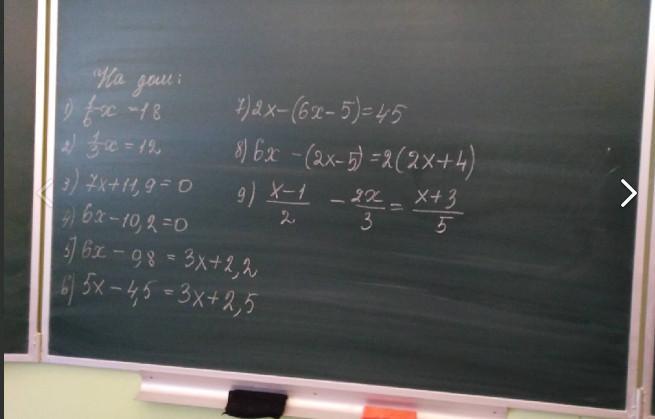 На дом:
1) 1/6 x = 18
2) 1/3 x = 12
3) 7x+11,9=0
4) 6x-10,2=0
5) 6x - 0,8 = 3x+2,2
6) 5x - 4,5 = 3x+2,5
7) 2x-(6x-5)=45
8) 6x -(2x-5)=2(2x+4)
9) x-1/2 - 2x/3 = x+3/5